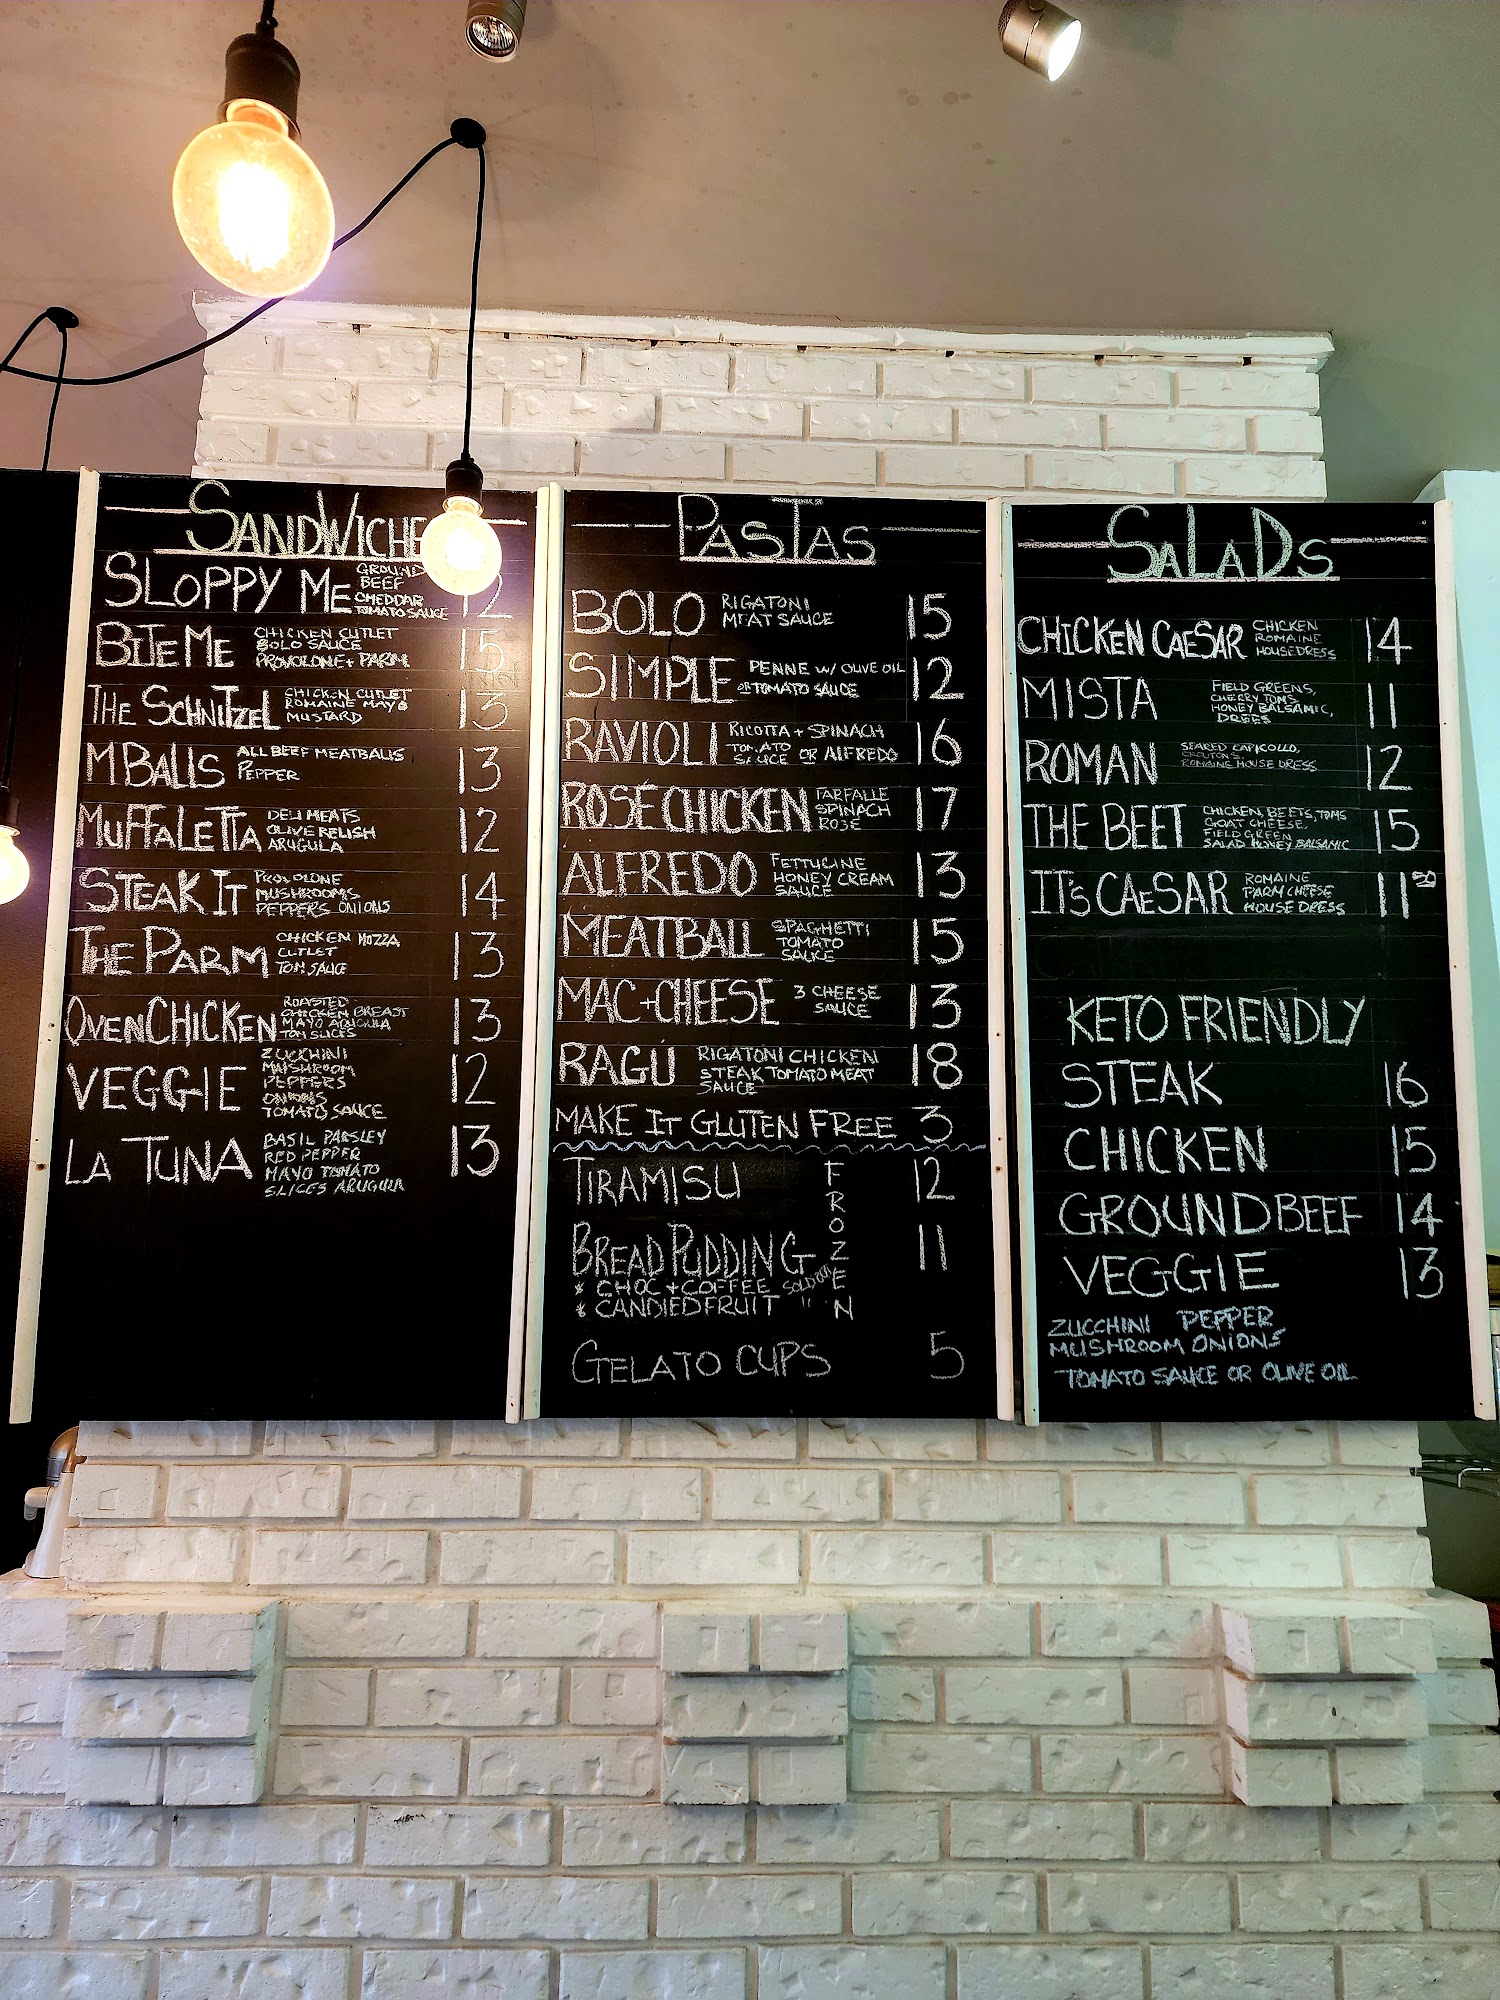 SANDWICHE
SLOPPY ME GROUND BEEF CHEDDAR TOMATO SAUCE 12
BITE ME CHICKEN CUTLET BOLO SAUCE PROVOLONE + PARM 15
THE SCHNITZEL CHICKEN CUTLET ROMAINE MAYO MUSTARD 13
MBALLS ALL BEEF MEATBALLS PEPPER 13
MUFFALETTA DELI MEATS OLIVE RELISH ARUGULA 12
STEAK IT PROVOLONE MUSHROOMS PEPPERS ONIONS 14
THE PARM CHICKEN MOZZA CUTLET TOM SAUCE 13
OVEN CHICKEN ROASTED CHICKEN BREAST MAYO ARUGULA TOM SLICES 13
VEGGIE ZUCCHINI MUSHROOM PEPPERS ONIONS TOMATO SAUCE 12
LA TUNA BASIL PARSLEY RED PEPPER MAYO TOMATO SLICES ARUGULA 13
PASTAS
BOLO RIGATONI MEAT SAUCE 15
SIMPLE PENNE W/ OLIVE OIL or TOMATO SAUCE 12
RAVIOLI RICOTTA + SPINACH TOMATO SAUCE OR ALFREDO 16
ROSE CHICKEN FARFALLE SPINACH ROSE 17
ALFREDO FETTUCINE HONEY CREAM SAUCE 13
MEATBALL SPAGHETTI TOMATO SAUCE 15
MAC+CHEESE 3 CHEESE SAUCE 13
RAGU RIGATONI CHICKEN STEAK TOMATO MEAT SAUCE 18
MAKE IT GLUTEN FREE 3
TIRAMISU 12
BREAD PUDDING 11
* CHOC + COFFEE SOLD OUT
* CANDIED FRUIT "
FROZEN
GELATO CUPS 5
SALADS
CHICKEN CAESAR CHICKEN ROMAINE HOUSE DRESS 14
MISTA FIELD GREENS, CHERRY TOMS, HONEY BALSAMIC, DRESS 11
ROMAN SEARED CAPICOLLO, CROUTONS, ROMAINE HOUSE DRESS 12
THE BEET CHICKEN, BEETS, TOMS GOAT CHEESE, FIELD GREEN SALAD HONEY BALSAMIC 15
IT'S CAESAR ROMAINE PARM CHEESE HOUSE DRESS 11 50
KETO FRIENDLY
STEAK 16
CHICKEN 15
GROUND BEEF 14
VEGGIE 13
ZUCCHINI PEPPER
MUSHROOM ONIONS
TOMATO SAUCE OR OLIVE OIL